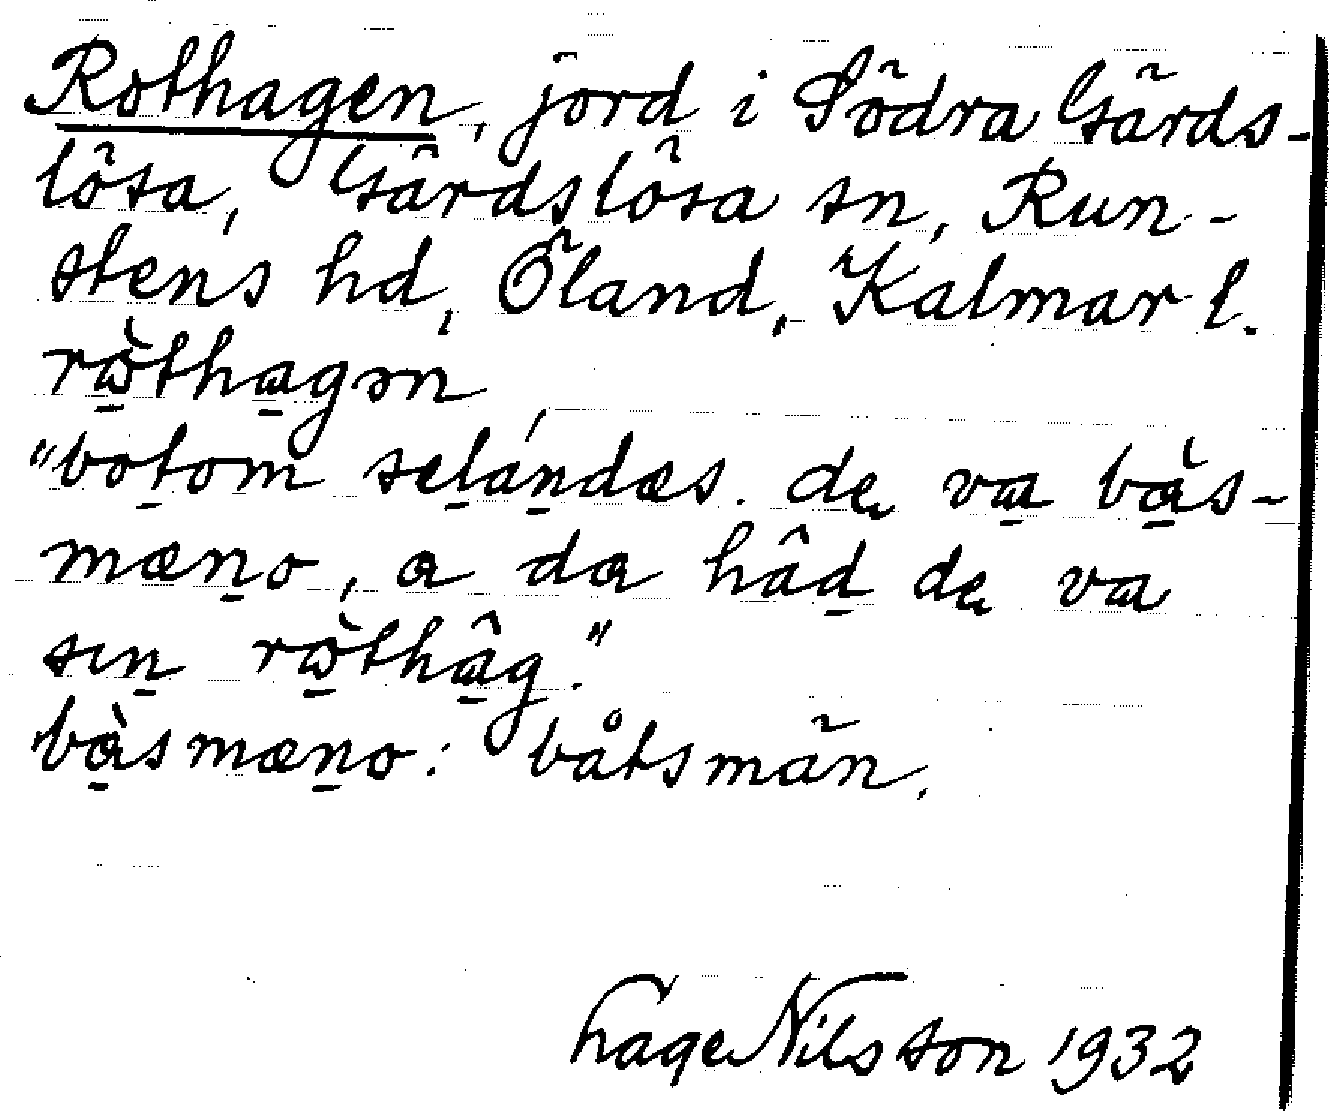 Rothagen, jord i Södra Gärds-
lösa, Gärdslösa sn, Run-
stens hd, Öland, Kalmar l.
rɷ̀thɑgən
"botom selándæs. de va bàs-
mæno, a da hâd de va
sın rɷ̀thâg."
bàsmæno: båtsmän.
Nilsson 1932